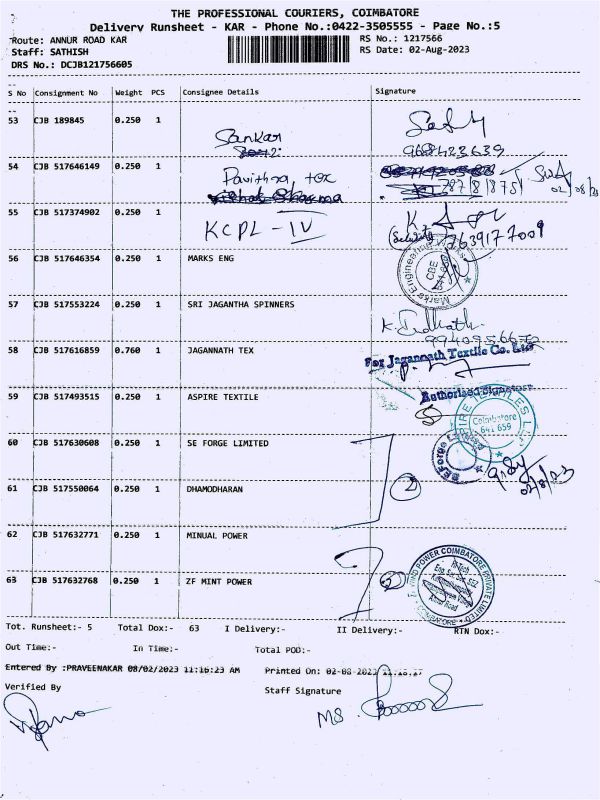 THE PROFESSIONAL COURIERS, COIMBATORE
Delivery Runsheet - KAR - Phone No.:0422-3505555 - Page No.:5
Route: ANNUR ROAD KAR RS No.: 1217566
Staff: SATHISH RS Date: 02-Aug-2023
DRS No.: DCJB121756605
S No Consignment No Weight PCS Consignee Details Signature
53 CJB 189845 0.250 1
Sankar 968423639
54 CJB 517646149 0.250 1
Pavithra, tex
02/08/23
55 CJB 517374902 0.250 1
KCPL - IV 7639177009
56 CJB 517646354 0.250 1 MARKS ENG
Marks Engineering Works
CBE
57 CJB 517553224 0.250 1 SRI JAGANTHA SPINNERS
58 CJB 517616859 0.760 1 JAGANNATH TEX
For Jagannath Textile Co. Ltd
Authorised Signatory
59 CJB 517493515 0.250 1 ASPIRE TEXTILE
Coimbatore
641 659
60 CJB 517630608 0.250 1 SE FORGE LIMITED
SE Forge Limited
02/8/23
61 CJB 517550064 0.250 1 DHAMODHARAN
2
62 CJB 517632771 0.250 1 MINUAL POWER
63 CJB 517632768 0.250 1 ZF MINT POWER
2
WIND POWER COIMBATORE PRIVATE LIMITED
Tot. Runsheet:- 5 Total Dox:- 63 I Delivery:- II Delivery:- RTN Dox:-
Out Time:- In Time:- Total POD:-
Entered By :PRAVEENAKAR 08/02/2023 11:16:23 AM Printed On: 02-08-2023 11:16:27
Verified By Staff Signature
MS.